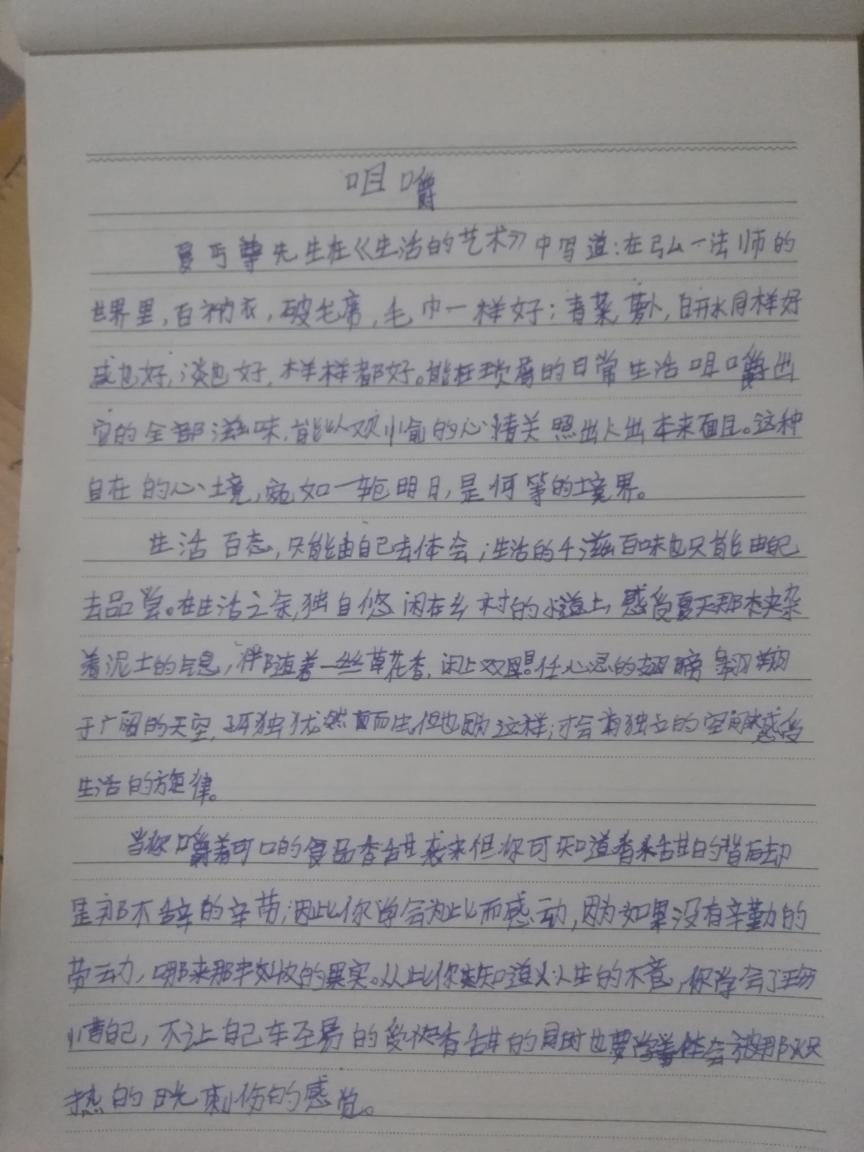 咀嚼
夏丏尊先生在《生活的艺术》中写道:在弘一法师的
世界里,百衲衣,破毛席,毛巾一样好;青菜,萝卜,白开水同样好
咸也好,淡也好,样样都好。能在琐屑的日常生活咀嚼出
它的全部滋味,能以欢愉的心情关照出人出本来面目。这种
自在的心境,宛如一轮明月,是何等的境界。
生活百态,只能由自己去体会;生活的千滋百味也只能由自己
去品尝。在生活之余,独自悠闲在乡村的小道上,感受夏天那夹杂
着泥土的气息,伴随着一丝草花香,闭上双眼任心灵的翅膀翱翔
于广阔的天空,孤独犹然而生,但也因为这样,才会有独立的空间感受
生活的旋律。
当你嚼着可口的食品香甜袭来但你可知道香甜的背后却
是那不辞的辛劳,因此你学会为此而感动,因为如果没有辛勤的
劳动,哪来那丰收的果实。从此你知道人生的不意,你学会了
自己,不让自己车至易的香甜的同时也要学着体会被那火
热的目光刺伤的感觉。